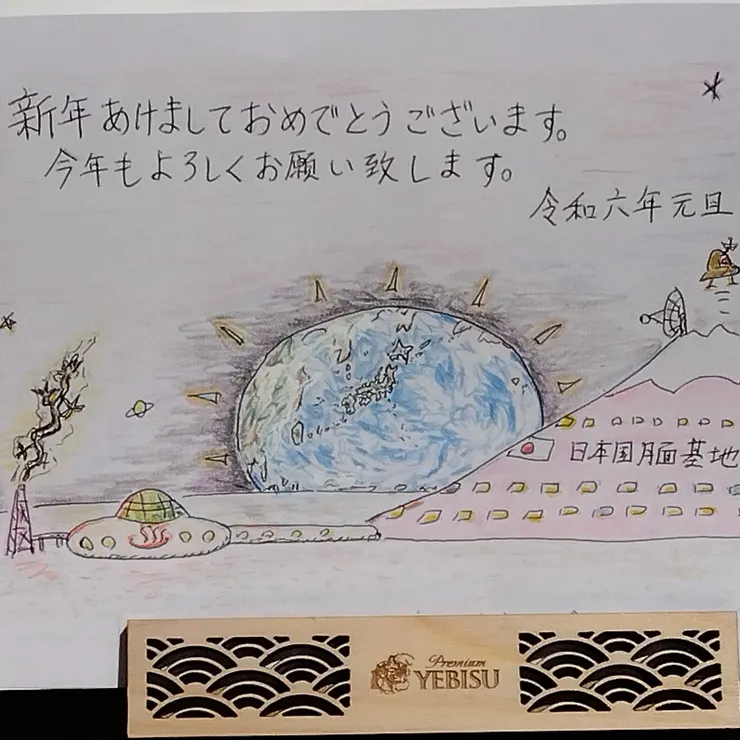 新年あけましておめでとうございます。
今年もよろしくお願い致します。
令和六年元旦
日本国月面基地
Premium
YEBISU